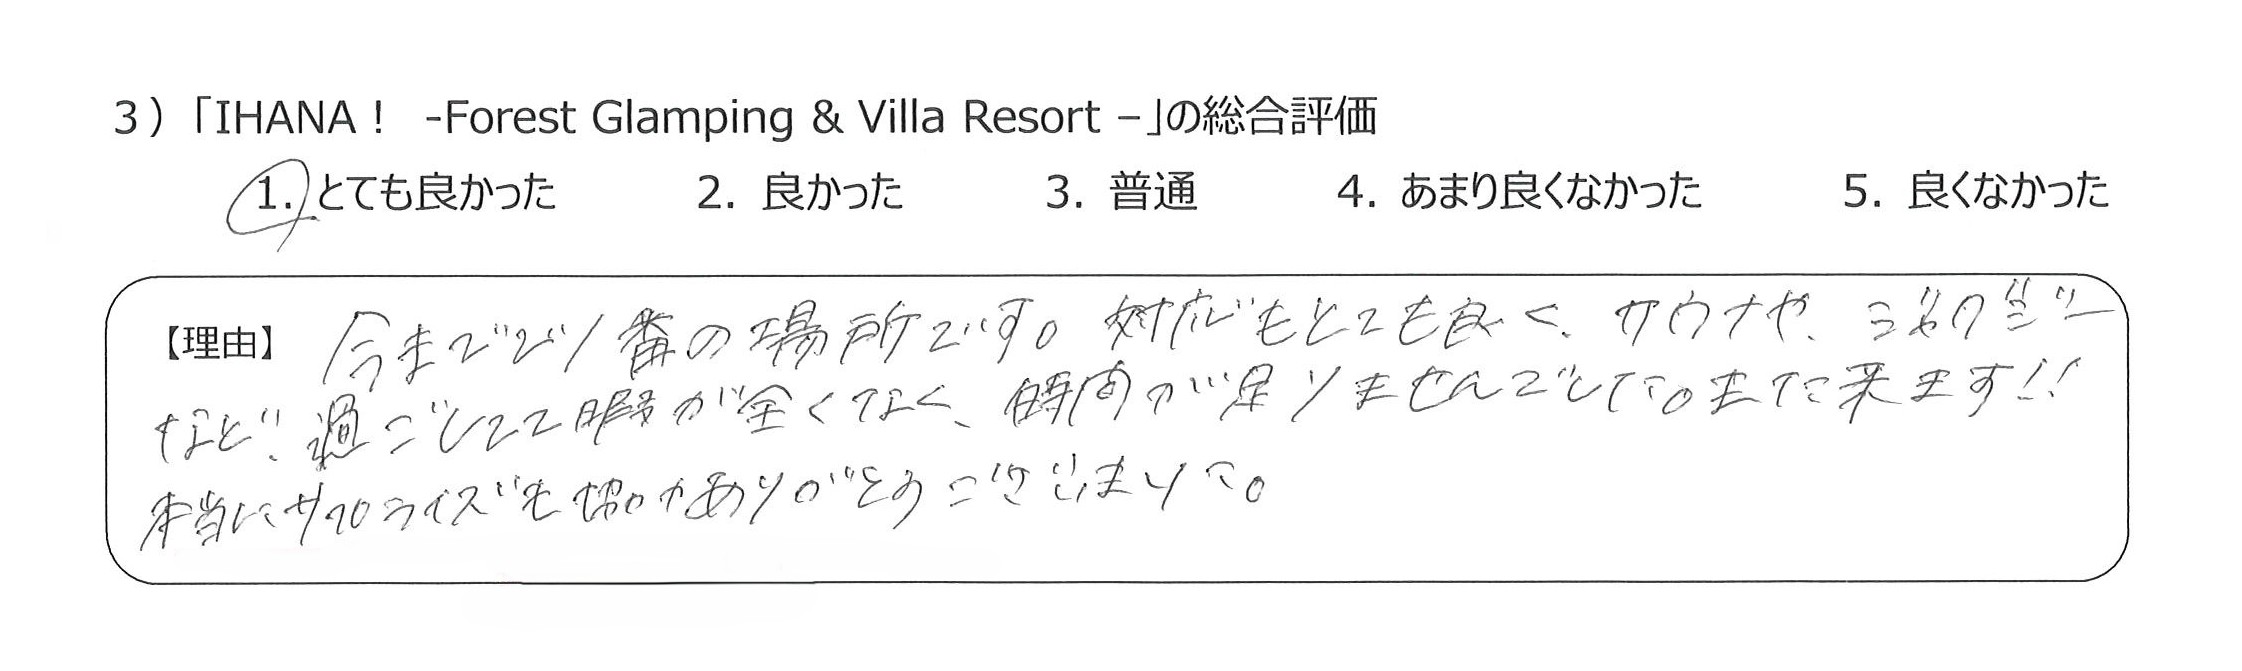 3）「IHANA！ -Forest Glamping & Villa Resort –」の総合評価
1. とても良かった 2. 良かった 3. 普通 4. あまり良くなかった 5. 良くなかった
【理由】 今までで1番の場所です。対応もとても良く、サウナや、ジャグジー
など、過ごしてて暇が全くなく、時間が足りませんでした。また来ます!!
本当にサプライズも協力ありがとうございました。